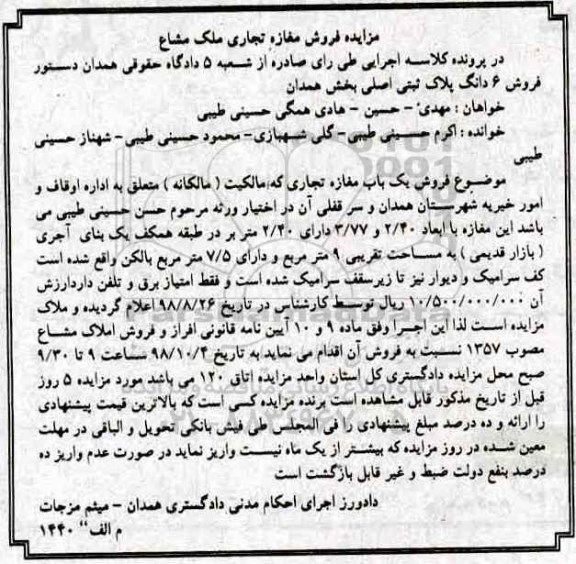 مزایده فروش مغازه تجاری ملک مشاع
در پرونده کلاسه اجرایی طی رای صادره از شعبه ۵ دادگاه حقوقی همدان دستور
فروش ۶ دانگ پلاک ثبتی اصلی بخش همدان
خواهان : مهدی - حسین - هادی همگی حسینی طیبی
خوانده : اکرم حسینی طیبی - گلی شهبازی - محمود حسینی طیبی - شهناز حسینی
طیبی
موضوع فروش یک باب مغازه تجاری که مالکیت ( مالکانه ) متعلق به اداره اوقاف و
امور خیریه شهرستان همدان و سر قفلی آن در اختیار ورثه مرحوم حسن حسینی طیبی می
باشد این مغازه با ابعاد ۲/۴۰ و ۳/۷۷ دارای ۲/۴۰ متر بر در طبقه همکف یک بنای آجری
( بازار قدیمی ) به مساحت تقریبی ۹ متر مربع و دارای ۷/۵ متر مربع بالکن واقع شده است
کف سرامیک و دیوار نیز تا زیرسقف سرامیک شده است و فقط امتیاز برق و تلفن داردارزش
آن ۱۰/۵۰۰/۰۰۰/۰۰۰ ریال توسط کارشناس در تاریخ ۹۸/۸/۲۶ اعلام گردیده و ملاک
مزایده است لذا این اجرا وفق ماده ۹ و ۱۰ آیین نامه قانونی افراز و فروش املاک مشاع
مصوب ۱۳۵۷ نسبت به فروش آن اقدام می نماید به تاریخ ۹۸/۱۰/۴ ساعت ۹ تا ۹/۳۰
صبح محل مزایده دادگستری کل استان واحد مزایده اتاق ۱۲۰ می باشد مورد مزایده ۵ روز
قبل از تاریخ مذکور قابل مشاهده است برنده مزایده کسی است که بالاترین قیمت پیشنهادی
را ارائه و ده درصد مبلغ پیشنهادی را فی المجلس طی فیش بانکی تحویل و الباقی در مهلت
معین شده در روز مزایده که بیشتر از یک ماه نیست واریز نماید در صورت عدم واریز ده
درصد بنفع دولت ضبط و غیر قابل بازگشت است
دادورز اجرای احکام مدنی دادگستری همدان - میثم مزجات
م الف ۱۴۴۰
ParsNamadData